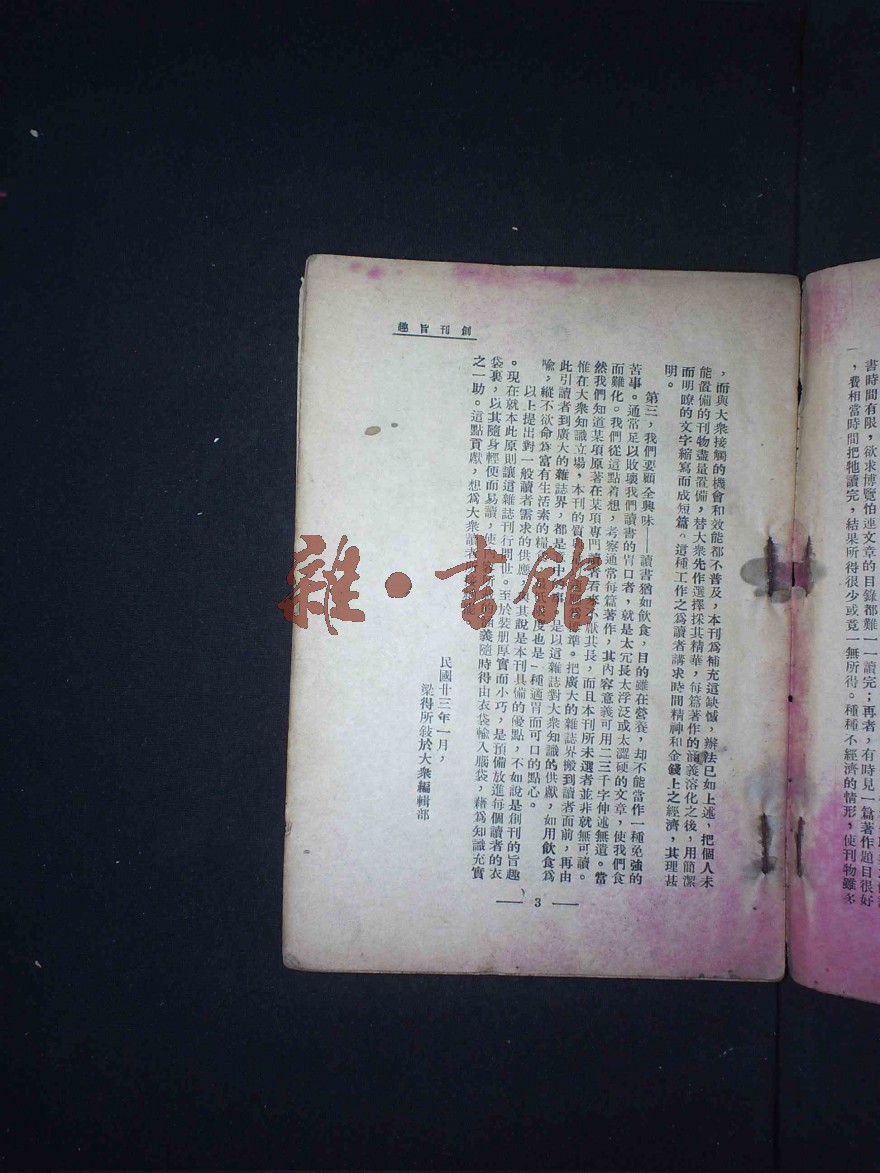 書時間有限，欲求博覽怕連文章的目錄都難一一讀完；再者，有時見一篇著作題目很好
，費相當時間把牠讀完，結果所得很少或竟一無所得。種種不經濟的情形，使刊物雖多
創刊旨趣
，而與大衆接觸的機會和效能都不普及，本刊爲補充這缺憾，辦法已如上述，把個人未
能置備的刊物盡量置備，替大衆先作選擇採其精華，每篇著作的涵義溶化之後，用簡潔
而明瞭的文字縮寫而成短篇。這種工作之爲讀者講求時間精神和金錢上之經濟，其理甚
明。
第三，我們要顧全興味——讀書猶如飲食，目的雖在營養，却不能當作一種免強的
苦事。通常足以敗壞我們讀書的胃口者，就是太冗長太浮泛或太澀硬的文章，使我們食
而難化。我們從這點着想，考察通常每篇著作，其內容意義可用二三千字伸述無遺。當
然我們知道某項原著在某項專門 者看來 獻其長，而且本刊所未選者並非就無可讀。
惟在大衆知識立場，本刊的質 準。把廣大的雜誌界搬到讀者面前，再由
此引讀者到廣大的雜誌界，都是 中 是以這雜誌對大衆知識的供獻，如用飲食爲
喻，縱不欲命爲富有生活素的糧 度也是一種適胃而可口的點心。
以上提出對一般讀者需求的供應 其說是本刊具備的優點，不如說是創刊的旨趣
。現在就本此原則讓這雜誌刊行問世。至於裝册厚實而小巧，是預備放進每個讀者的衣
袋裏，以其隨身輕便而易讀，使 義隨時得由衣袋輸入腦袋，藉爲知識充實
之一助。這點貢獻，想爲大衆讀者
民國廿三年一月，
梁得所敍於大衆編輯部
— 3 —
雜·書館